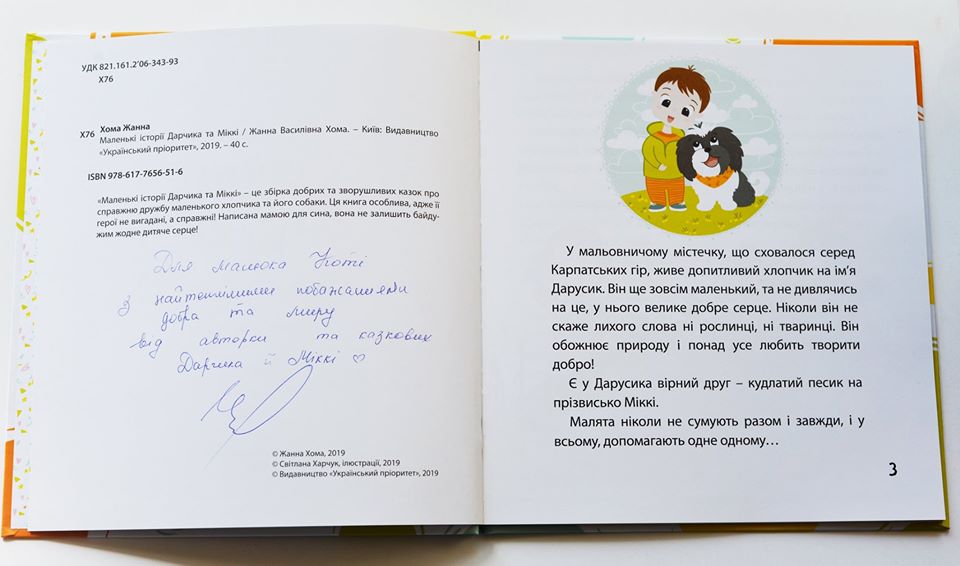 УДК 821.161.2'06-343-93
Х76
Х76 Хома Жанна
Маленькі історії Дарчика та Міккі / Жанна Василівна Хома. – Київ: Видавництво
«Український пріоритет», 2019. – 40 с.
ISBN 978-617-7656-51-6
«Маленькі історії Дарчика та Міккі» – це збірка добрих та зворушливих казок про
справжню дружбу маленького хлопчика та його собаки. Ця книга особлива, адже її
герої не вигадані, а справжні! Написана мамою для сина, вона не залишить байду-
жим жодне дитяче серце!
Для малюка
з найтеплішими побажаннями
добра та миру
від авторки та казкових
Дарчика й Міккі ♡
© Жанна Хома, 2019
© Світлана Харчук, ілюстрації, 2019
© Видавництво «Український пріоритет», 2019
У мальовничому містечку, що сховалося серед
Карпатських гір, живе допитливий хлопчик на ім'я
Дарусик. Він ще зовсім маленький, та не дивлячись
на це, у нього велике добре серце. Ніколи він не
скаже лихого слова ні рослинці, ні тваринці. Він
обожнює природу і понад усе любить творити
добро!
Є у Дарусика вірний друг – кудлатий песик на
прізвисько Міккі.
Малята ніколи не сумують разом і завжди, і у
всьому, допомагають одне одному…
3